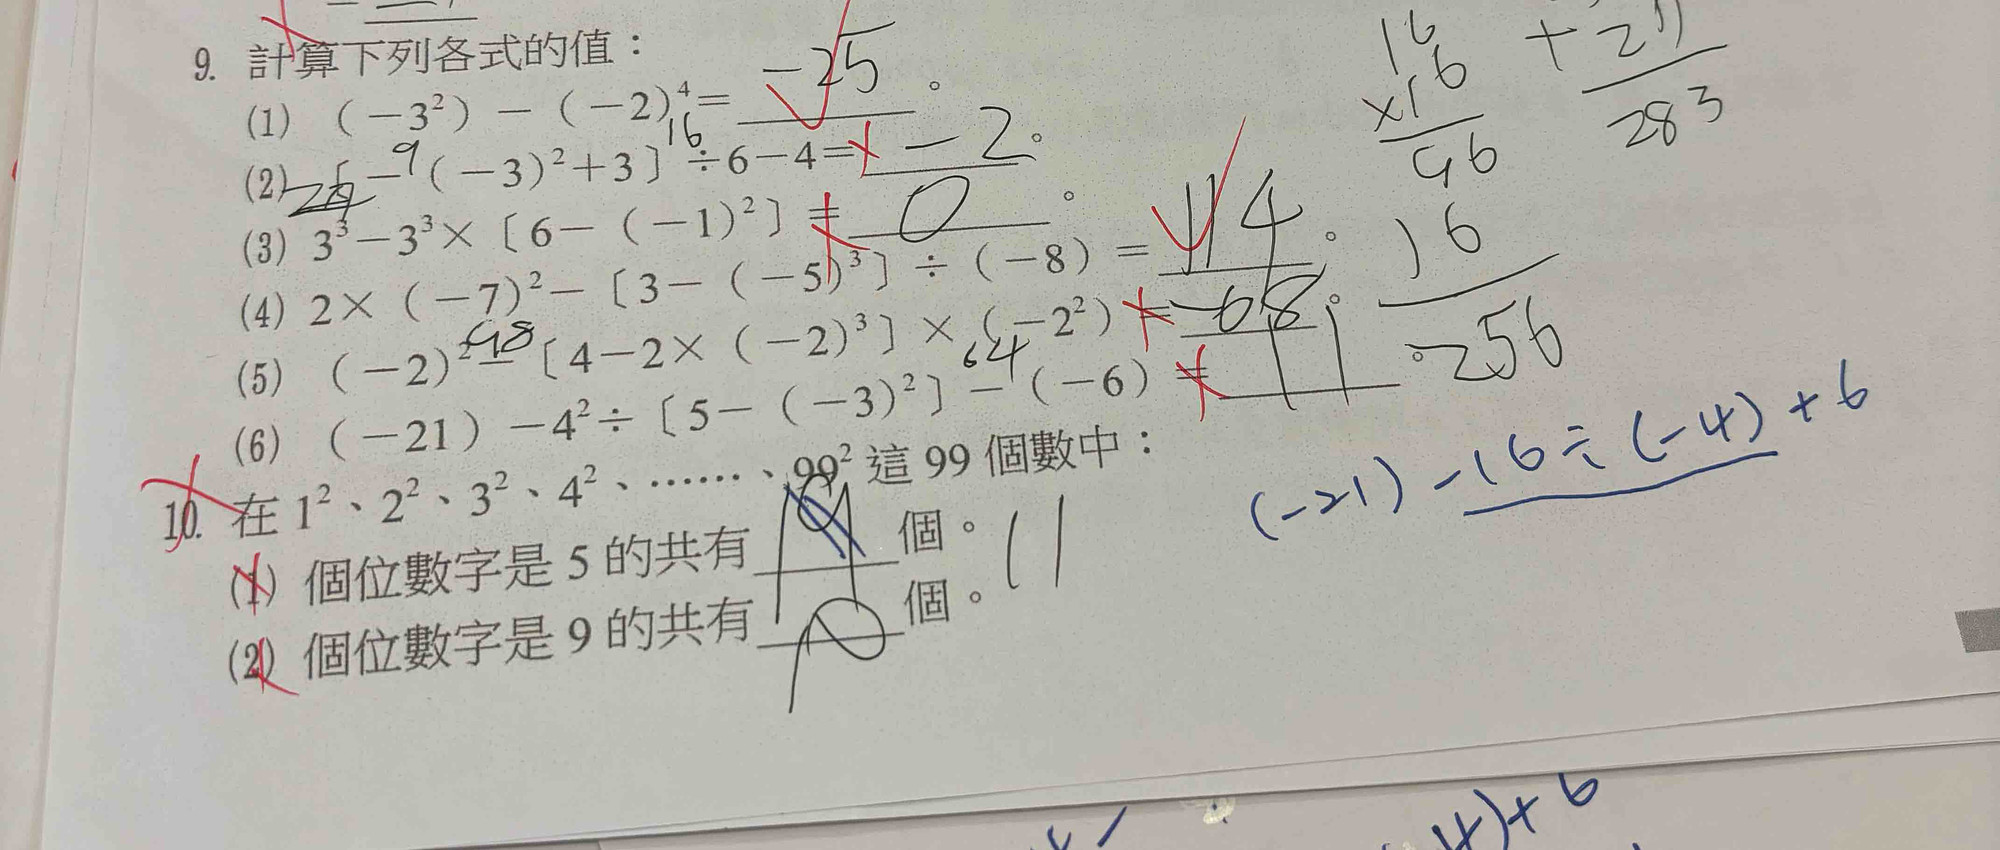 9. 計算下列各式的值：
(1) (－3²)－(－2)⁴＝ -25 。
16
(2) 〔－(－3)²＋3〕÷6－4＝ -2 。
9
(3) 3³－3³×〔6－(－1)²〕＝ 0 。
(4) 2×(－7)²－〔3－(－5)³〕÷(－8)＝ 114 。
98
(5) (－2)²－〔4－2×(－2)³〕×(－2²)＝ -68 。
64
(6) (－21)－4²÷〔5－(－3)²〕－(－6)＝ -11 。
10. 在 1²、2²、3²、4²、……、99² 這 99 個數中：
(1) 個位數字是 5 的共有 個。
(2) 個位數字是 9 的共有 個。
11
16
×16
96
16
256
+27
283
(-21) -16÷(-4)+6
4)+6